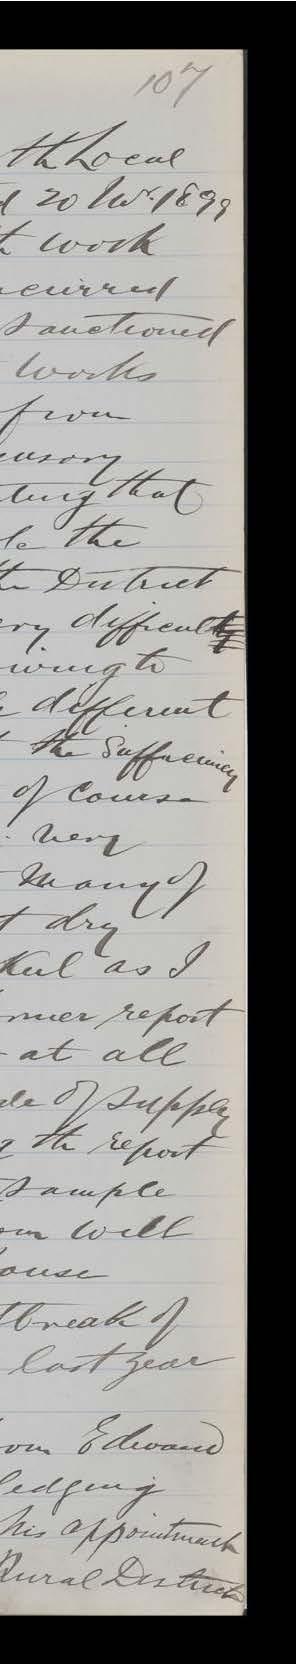 107
th Local
d 20 Nov. 1899
th work
ncurred
sanctioned
works
from
easory
ting that
le the
the District
ery difficult
owing to
different
the Sufficiency
of course
very
Many of
t dry
as I
rmer report
at all
de of Supply
g the report
sample
om well
ouse
tbreak of
last year
rom Edward
ledging
his appointment
Rural District